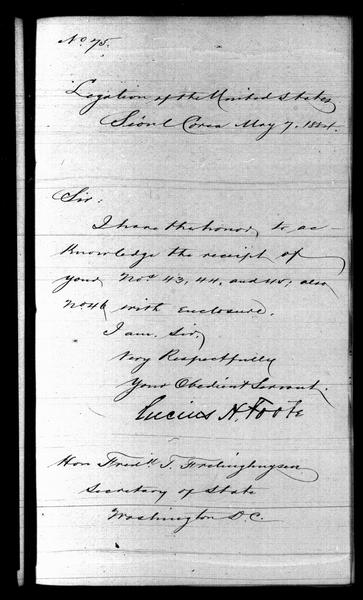 No 75.
Legation of the United States
Sioul Corea May 7. 1884.
Sir:
I have the honor, to ac-
knowledge the receipt of
your Nos 43, 44, and 45, also
No 46 with enclosure.
I am, Sir,
Very Respectfully
Your Obedient Servant.
Lucius H. Foote
Hon Fredk T. Frelinghuysen
Secretary of State
Washington D.C.